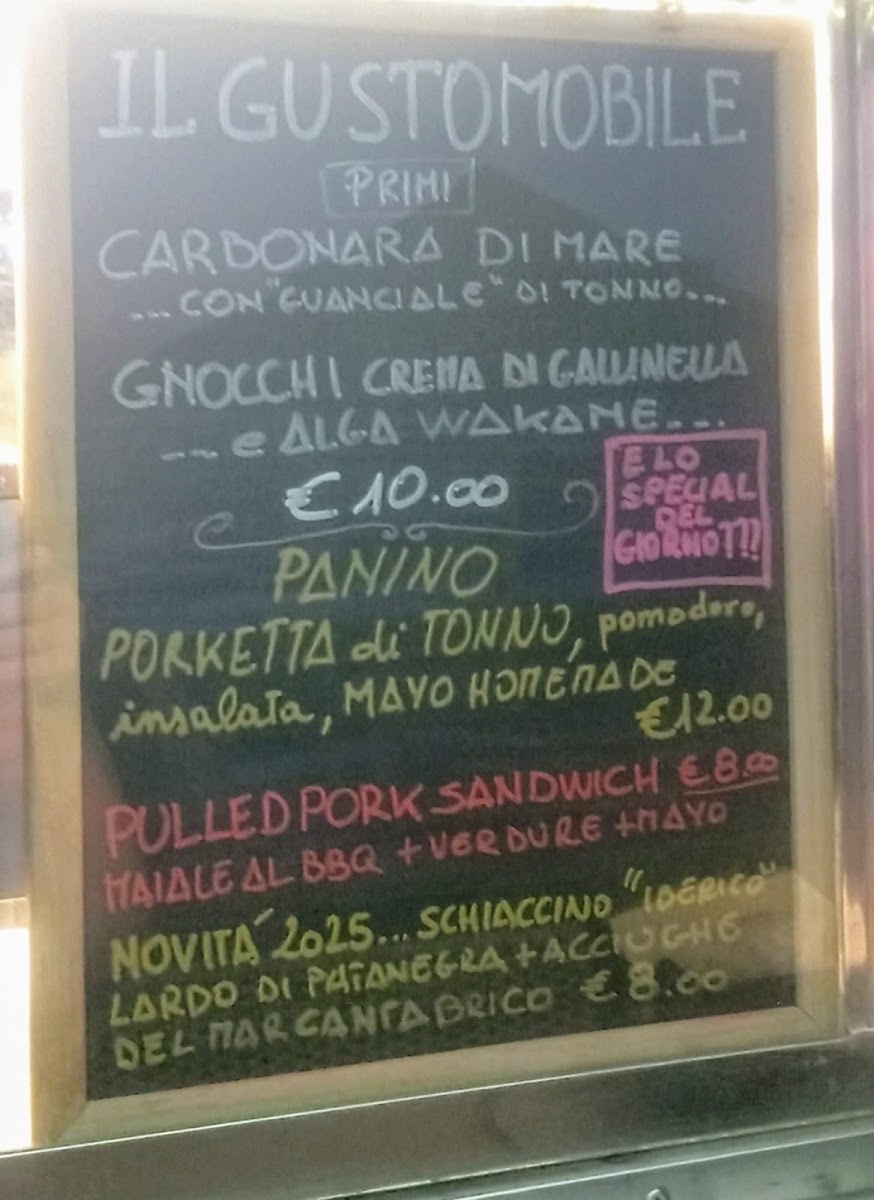 IL GUSTOMOBILE
PRIMI
CARBONARA DI MARE
... CON "GUANCIALE" DI TONNO...
GNOCCHI CREMA DI GALLINELLA
... e ALGA WAKAME...
€ 10.00
E LO
SPECIAL
DEL
GIORNO???
PANINO
PORKETTA di TONNO, pomodoro,
insalata, MAYO HOMEMADE
€12.00
PULLED PORK SANDWICH € 8.00
MAIALE AL BBQ + VERDURE + MAYO
NOVITÀ 2025... SCHIACCINO "IBERICO"
LARDO DI PATANEGRA + ACCIUGHE
DEL MAR CANTABRICO € 8.00